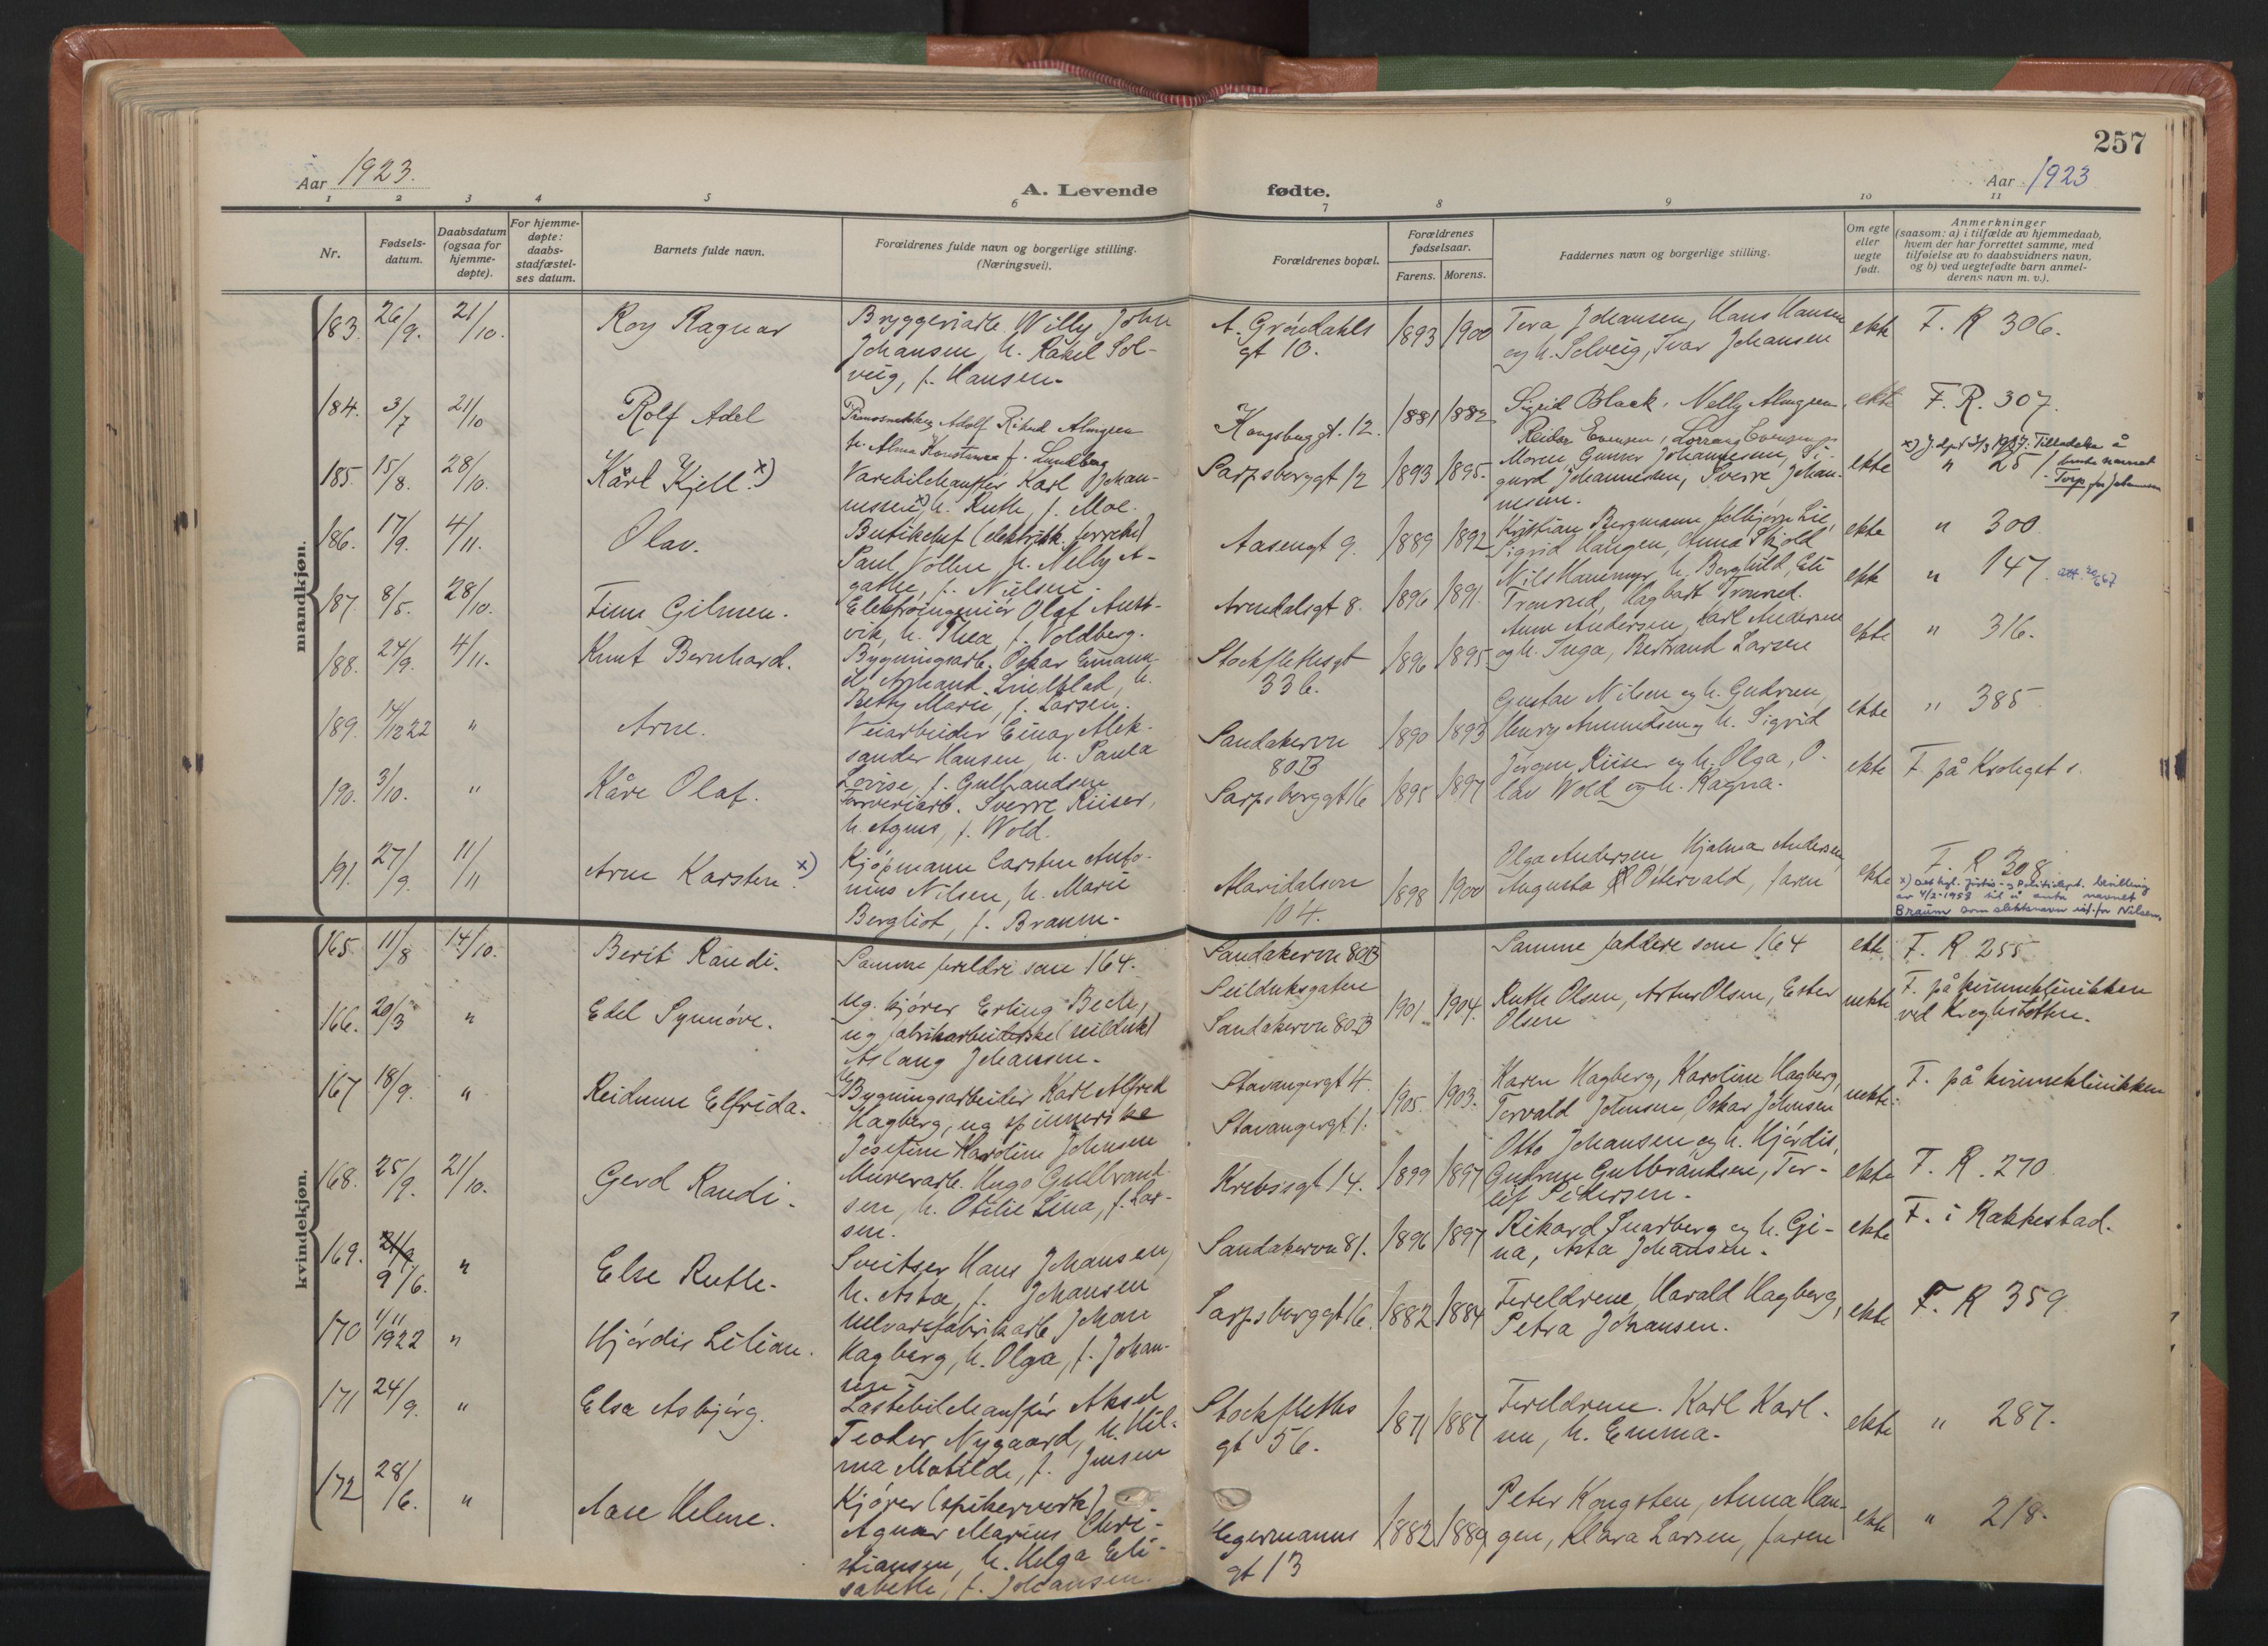 257
Aar 1923.
A. Levende fødte.
Aar 1923
1 2 3 4 5 6 7 8 9 10 11
Nr.
Fødsels-
datum.
Daabsdatum
(ogsaa for
hjemme-
døpte).
For hjemme-
døpte:
daabs-
stadfæstel-
ses datum.
Barnets fulde navn.
Forældrenes fulde navn og borgerlige stilling.
(Næringsvei).
Forældrenes bopæl.
Forældrenes
fødselsaar.
Farens. Morens.
Faddernes navn og borgerlige stilling.
Om egte
eller
uegte
født.
Anmerkninger
(saasom: a) i tilfælde av hjemmedaab,
hvem der har forrettet samme, med
tilføielse av to daabsvidners navn,
og b) ved uegtefødte barn anmel-
derens navn m. v.).
mandkjøn.
183. 26/9. 21/10. Roy Ragnar
Bryggeriarb. Willy John
Johansen, h. Rakel Sol-
veig, f. Hansen.
A. Grøndahls
gt 10.
1893 1900
Tora Johansen, Hans Hansen
og h. Solveig, Ivar Johansen
ekte F. R 306.
184. 3/7 21/10 Rolf Adel
Adolf Rikard Almgren
h. Alma Konstanse f. Lundberg
Kongsbuggt. 12. 1881 1882
Sigrid Black, Nelly Almgren,
Reidar Evensen,
ekte F. R. 307.
185. 15/8. 28/10. Kårl Kjell. x)
Varebilchauffør Karl Johan-
nesen x), h. Ruth, f. Moe.
Sarpsborggt 12 1893 1895.
Moren, Gunnar Johannesen, Si-
gurd Johannesen, Sverre Johan-
nesen.
ekte " 251
x) Tilladelse å
bruke navnet
Torp for Johannesen
186. 17/9. 4/11. Olav.
Butikchef (elektrisk forretn)
Paul Vollen h. Nelly A-
gathe, f. Nielsen.
Aasengt 9. 1889 1892
Kristian Bergmann, Lie,
Sigrid Haugen, Anna Skjold
ekte " 300
187. 8/5. 28/10. Finn Gilmen.
Elektroingeniør Olaf Aust-
vik, h. Thea, f. Voldberg.
Arendalsgt 8. 1896 1891.
Nils Hammer, h. Borghild, Eli
Tronrud, Hagbart Tronrud.
ekte " 147.
188. 24/9. 4/11. Knut Bernhard.
Bygningsarb. Oskar Emanu-
el Lindblad, h.
Betty Marie, f. Larsen.
Stockflethsgt
33 b.
1896 1895.
Anne Andersen, Karl Andersen
og h. Inga, Bertrand Larsen
ekte " 316.
189. 14/12 22 " Arne.
Veiarbeider Einar Alek-
sander Hansen, h. Paula
Lovise, f. Gulbrandsen
Sandakervn
80B
1890 1893
Gustav Nilsen og h. Gudrun,
Henry Amundsen og h. Sigrid
ekte " 385
190. 3/10. " Kåre Olaf.
Farveriarb. Sverre Kiiser,
h. Agnes, f. Wold.
Sarpsborggt 16 1895 1897
Jørgen Kiiser og h. Olga, O-
lav Wold og h. Ragna.
ekte F. på Krohsgt 1.
191. 27/9. 11/11 Arne Karsten. x)
Kjøpmann Carsten Anto-
nius Nilsen, h. Marie
Bergliot, f. Braum.
Maridalsvn
104.
1898 1900
Olga Andersen, Hjalmar Andersen,
Augusta Østervald, faren
ekte F. R 308.
x) Det kgl. Justis- og Politidept. bevilling
av 4/2-1958 til å anta navnet
Braum som slektsnavn ist. for Nilsen.
kvindekjøn.
165. 11/8 14/10. Berit Randi.
Samme foreldre som 164.
Sandakervn 80B
Samme faddere som 164
ekte F. R 255
166. 20/3 " Edel Synnøve.
ug. kjører Erling Bech,
ug fabrikarbeiderske (seilduk)
Aslaug Johansen.
Seilduksgaten
Sandakervn 80B
1901 1904.
Ruth Olsen, Artur Olsen, Ester
Olsen
uekte F. på kvinneklinikken
ved Kroghstøtten.
167 18/9. " Reidunn Elfrida.
Bygningsarbeider Karl Alfred
Hagberg, ug spinnerske
Josefine Karoline Johnsen
Stavangergt 4.
Stavangergt 1.
1905. 1903.
Karen Hagberg, Karoline Hagberg,
Torvald Johnsen, Oskar Johnsen
uekte. F. på kvinneklinikken
168. 25/9. 21/10. Gerd Randi.
Murerarb. Hugo Gulbrand-
sen, h. Otilie Lina, f. Lar-
sen.
Krebsgt 14. 1899 1897
Otto Johansen og h. Hjørdis,
Gudrun Gulbrandsen, Tor-
leif Pedersen.
ekte F. R. 270
169. 21/9 9/6. " Else Ruth.
Sveitser Hans Johansen,
h. Asta, f. Johansen
Sandakervn 81. 1896 1897
Rikard Snarberg og h. Gi-
na, Asta Johansen.
ekte F. i Rakkestad.
170 4/11 1922 " Hjørdis Lilian.
Ulvarefabrikarb Johan
Hagberg, h. Olga, f. Johan-
sen.
Sarpsborggt 16. 1882 1884
Foreldrene, Harald Hagberg,
Petra Johansen.
ekte F. R 359
171 24/9. " Elsa Asbjørg.
Lastebilchauffør Aksel
Teodor Nygaard, h. Hil-
ma Matilde, f. Jensen
Stockfleths
gt 56.
1871 1887
Foreldrene. Karl Karl-
sen, h. Emma.
ekte " 287.
172 28/6. " Aase Helene.
Kjører (spikerverk)
Agnar Marius Chri-
stiansen, h. Helga Eli-
sabeth, f. Johansen.
Hegermanns
gt 13
1882 1889
Peter Kongsten, Anna Hau-
gen, Klara Larsen, faren
ekte " 218.